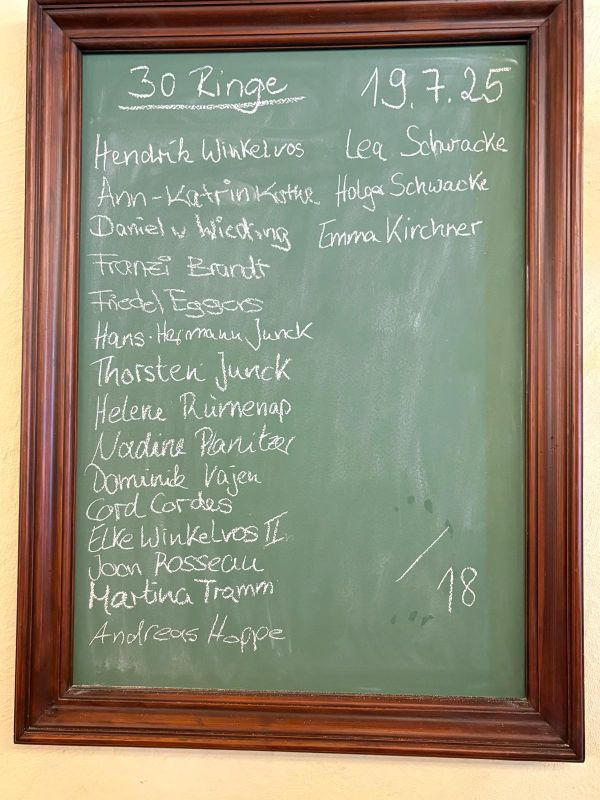 30 Ringe 19.7.25
Hendrik Winkelvos Lea Schwacke
Ann-Katrin Holger Schwacke
Daniel v Wieding Emma Kirchner
Franzi Brandt
Friedel Eggers
Hans-Hermann Junck
Thorsten Junck
Helene Rümenap
Nadine Planitzer
Dominik Vajen
Cord Cordes
Elke Winkelvos II
Joan Rosseau
Martina Tramm
Andreas Hoppe
/ 18